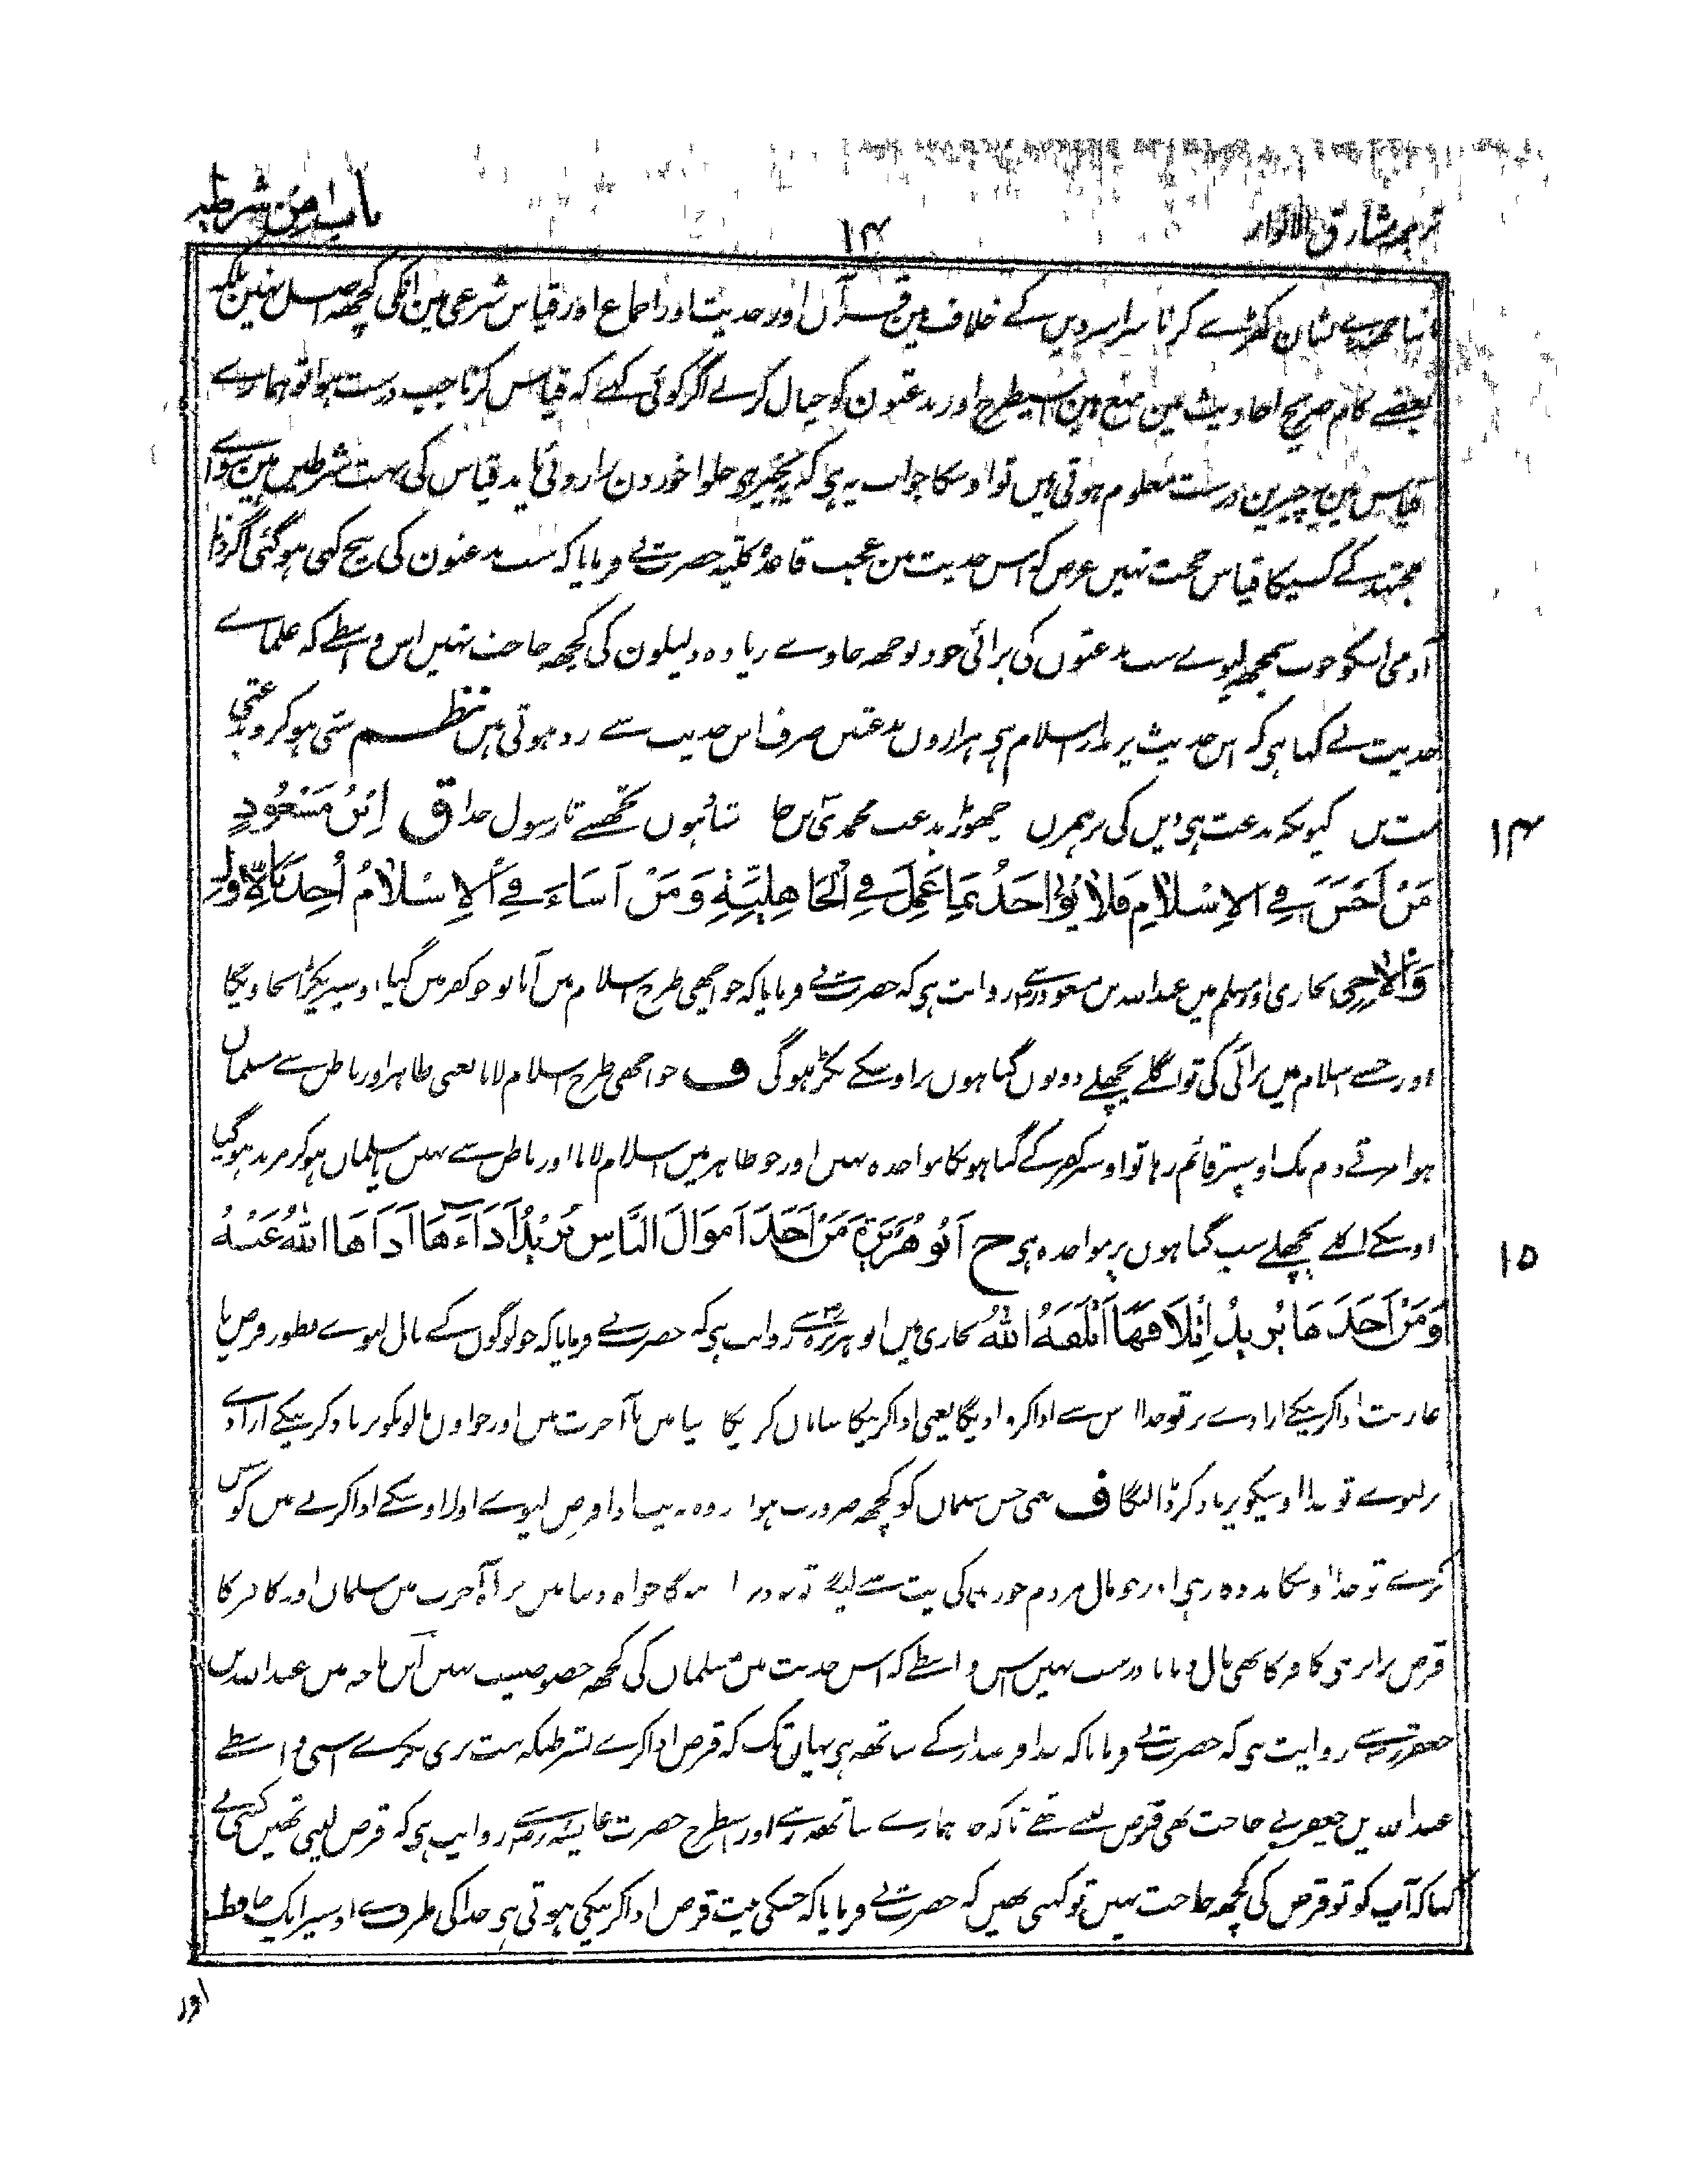 ترجمہ مشارق الانوار
۱۴
باب من شرطیہ
نشان کھڑے کرنا سراسر دیں کے خلاف ہین قرآن اور حدیث اور اجماع اور قیاس شرعی مین انکی کچھ اصل نہین بلکہ
بعضے کام صریح احادیث مین منع ہین اسیطرح اور بدعتون کو خیال کر لے اگر کوئی کہے کہ قیاس کرنا جب درست ہوا تو ہمارے
قیاس مین یہ چیزین درست معلوم ہوتی ہیں تو اوسکا جواب یہ ہی کہ حلوا خوردن را روئی باید قیاس کی بہت شرطیں ہین سواے
مجتہد کے کسیکا قیاس حجت نہیں غرض کہ اس حدیث میں عجب قاعدہ کلیہ حضرت نے فرمایا کہ سب بدعتون کی بیخ کنی ہو گئی اگر ذرا
آدمی اسکو خوب سمجھ لیوے سب بدعتوں کی برائی خود بوجھ جاوے زیادہ دلیلون کی کچھ حاجت نہیں اس واسطے کہ علماے
حدیث نے کہا ہی کہ اس حدیث پر مدار اسلام ہی ہزاروں بدعتیں صرف اس حدیث سے رد ہوتی ہیں نظم سنی ہو کر و بدعتی
مت بن کیونکہ بدعت ہی دیں کی رہزن چھوڑ بدعت محمدی بن جا تا ہوں تجھسے رسول خدا ق اِبْنُ مَسْعُودٍ
۱۴
مَنْ اَحْسَنَ فِی الْاِسْلَامِ فَلَا یُؤَاخَذُ بِمَا عَمِلَ فِی الْجَاهِلِیَّةِ وَمَنْ اَسَاءَ فِی الْاِسْلَامِ اُخِذَ بِالْاَوَّلِ
وَالْاٰخِرِ بخاری اور مسلم میں عبد اللہ بن مسعود رض سے روایت ہی کہ حضرت نے فرمایا کہ جو اچھی طرح اسلام میں آیا تو جو کفر میں کیا اوسپر پکڑا نجاویگا
اور جسے اسلام میں برائی کی تو اگلے پچھلے دونوں گناہوں پر اوسکے پکڑ ہوگی ف جو اچھی طرح اسلام لایا یعنی ظاہر اور باطن سے مسلمان
ہوا مرتے دم تک اوسپر قائم رہا تو اوسپر کفر کے گناہونکا مواخدہ نہیں اور جو ظاہر میں اسلام لایا اور باطن سے نہیں یا مسلمان ہوکر مرتد ہوگیا
اوسکے اگلے پچھلے سب گناہوں پر مواخدہ ہی خ اَبُوْ هُرَیْرَةَ مَنْ اَخَذَ اَمْوَالَ النَّاسِ یُرِیْدُ اَدَاءَهَا اَدَّاهَا اللّٰهُ عَنْهُ
۱۵
وَمَنْ اَخَذَهَا یُرِیْدُ اِتْلَافَهَا اَتْلَفَهُ اللّٰهُ بخاری میں ابو ہریرہ رض سے روایت ہی کہ حضرت نے فرمایا کہ جو لوگوں کے مال لیوے بطور قرض یا
عاریت ادا کرنیکے ارادے پر تو خدا اس سے ادا کروا دیگا یعنی ادا کرنیکا سامان کر دیگا دنیا میں یا آخرت میں اور جو اون مالونکو برباد کرنیکے ارادے
پر لیوے تو خدا اوسیکو برباد کر ڈالیگا ف یعنی جس مسلمان کو کچھ ضرورت ہو اور وہ بہ نیت ادا قرض لیوے اور اوسکے ادا کرنے میں کوشش
کرے تو خدا اوسکا مددگار ہی اور جو مال مردم خوری کی نیت سے لیگا تو برباد ہوگا خواہ دنیا میں خواہ آخرت میں مسلمان اور کافر کا
قرض برابر ہی کافر کا بھی مال دبانا درست نہیں اس واسطے کہ اس حدیث میں مسلمان کی کچھ خصوصیت نہیں ابن ماجہ میں عبد اللہ بن
جعفر رض سے روایت ہی کہ حضرت نے فرمایا کہ خدا قرضدار کے ساتھ ہی یہاں تک کہ قرض ادا کرے بشرطیکہ نیت بری نکرے اسی واسطے
عبد اللہ بن جعفر بے حاجت بھی قرض لیتے تھے تاکہ خدا ہمارے ساتھ رہے اور اسیطرح حضرت عایشہ رض سے روایت ہی کہ قرض لیتی تھیں کسی نے
کہا کہ آپ کو تو قرض کی کچھ حاجت نہیں تو کہتی تھیں کہ حضرت نے فرمایا کہ جسکی نیت قرض ادا کرنیکی ہوتی ہی خدا کی طرف سے اوسپر ایک حافظ
اور